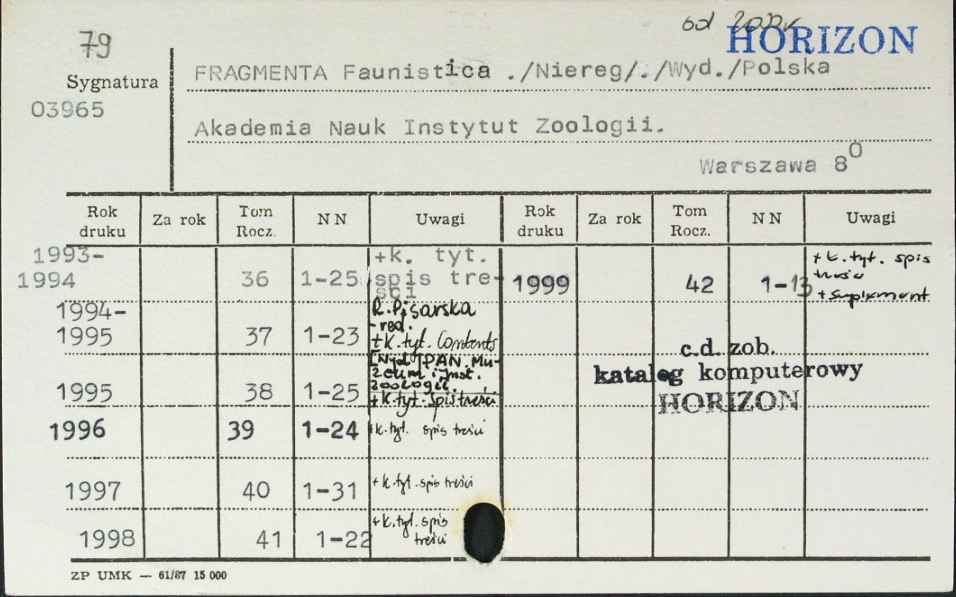 79
od 2000r
HORIZON
Sygnatura
03965
FRAGMENTA Faunistica ./Niereg/./Wyd./Polska
Akademia Nauk Instytut Zoologii.
Warszawa 8⁰
Rok druku Za rok Tom Rocz. NN Uwagi Rok druku Za rok Tom Rocz. NN Uwagi
1993-1994 36 1-25 +k. tyt. spis treści
1999 42 1-13 +k.tyt. spis treści +suplement
1994-1995 37 1-23 R.Pisarska -red. +k.tyt. Contents
1995 38 1-25 [Wyd] PAN. Muzeum i Inst. Zoologii. +k.tyt. spis treści
1996 39 1-24 +k.tyt. spis treści
1997 40 1-31 +k.tyt. spis treści
1998 41 1-22 +k.tyt. spis treści
c.d. zob.
katalog komputerowy
HORIZON
ZP UMK — 61/87 15 000